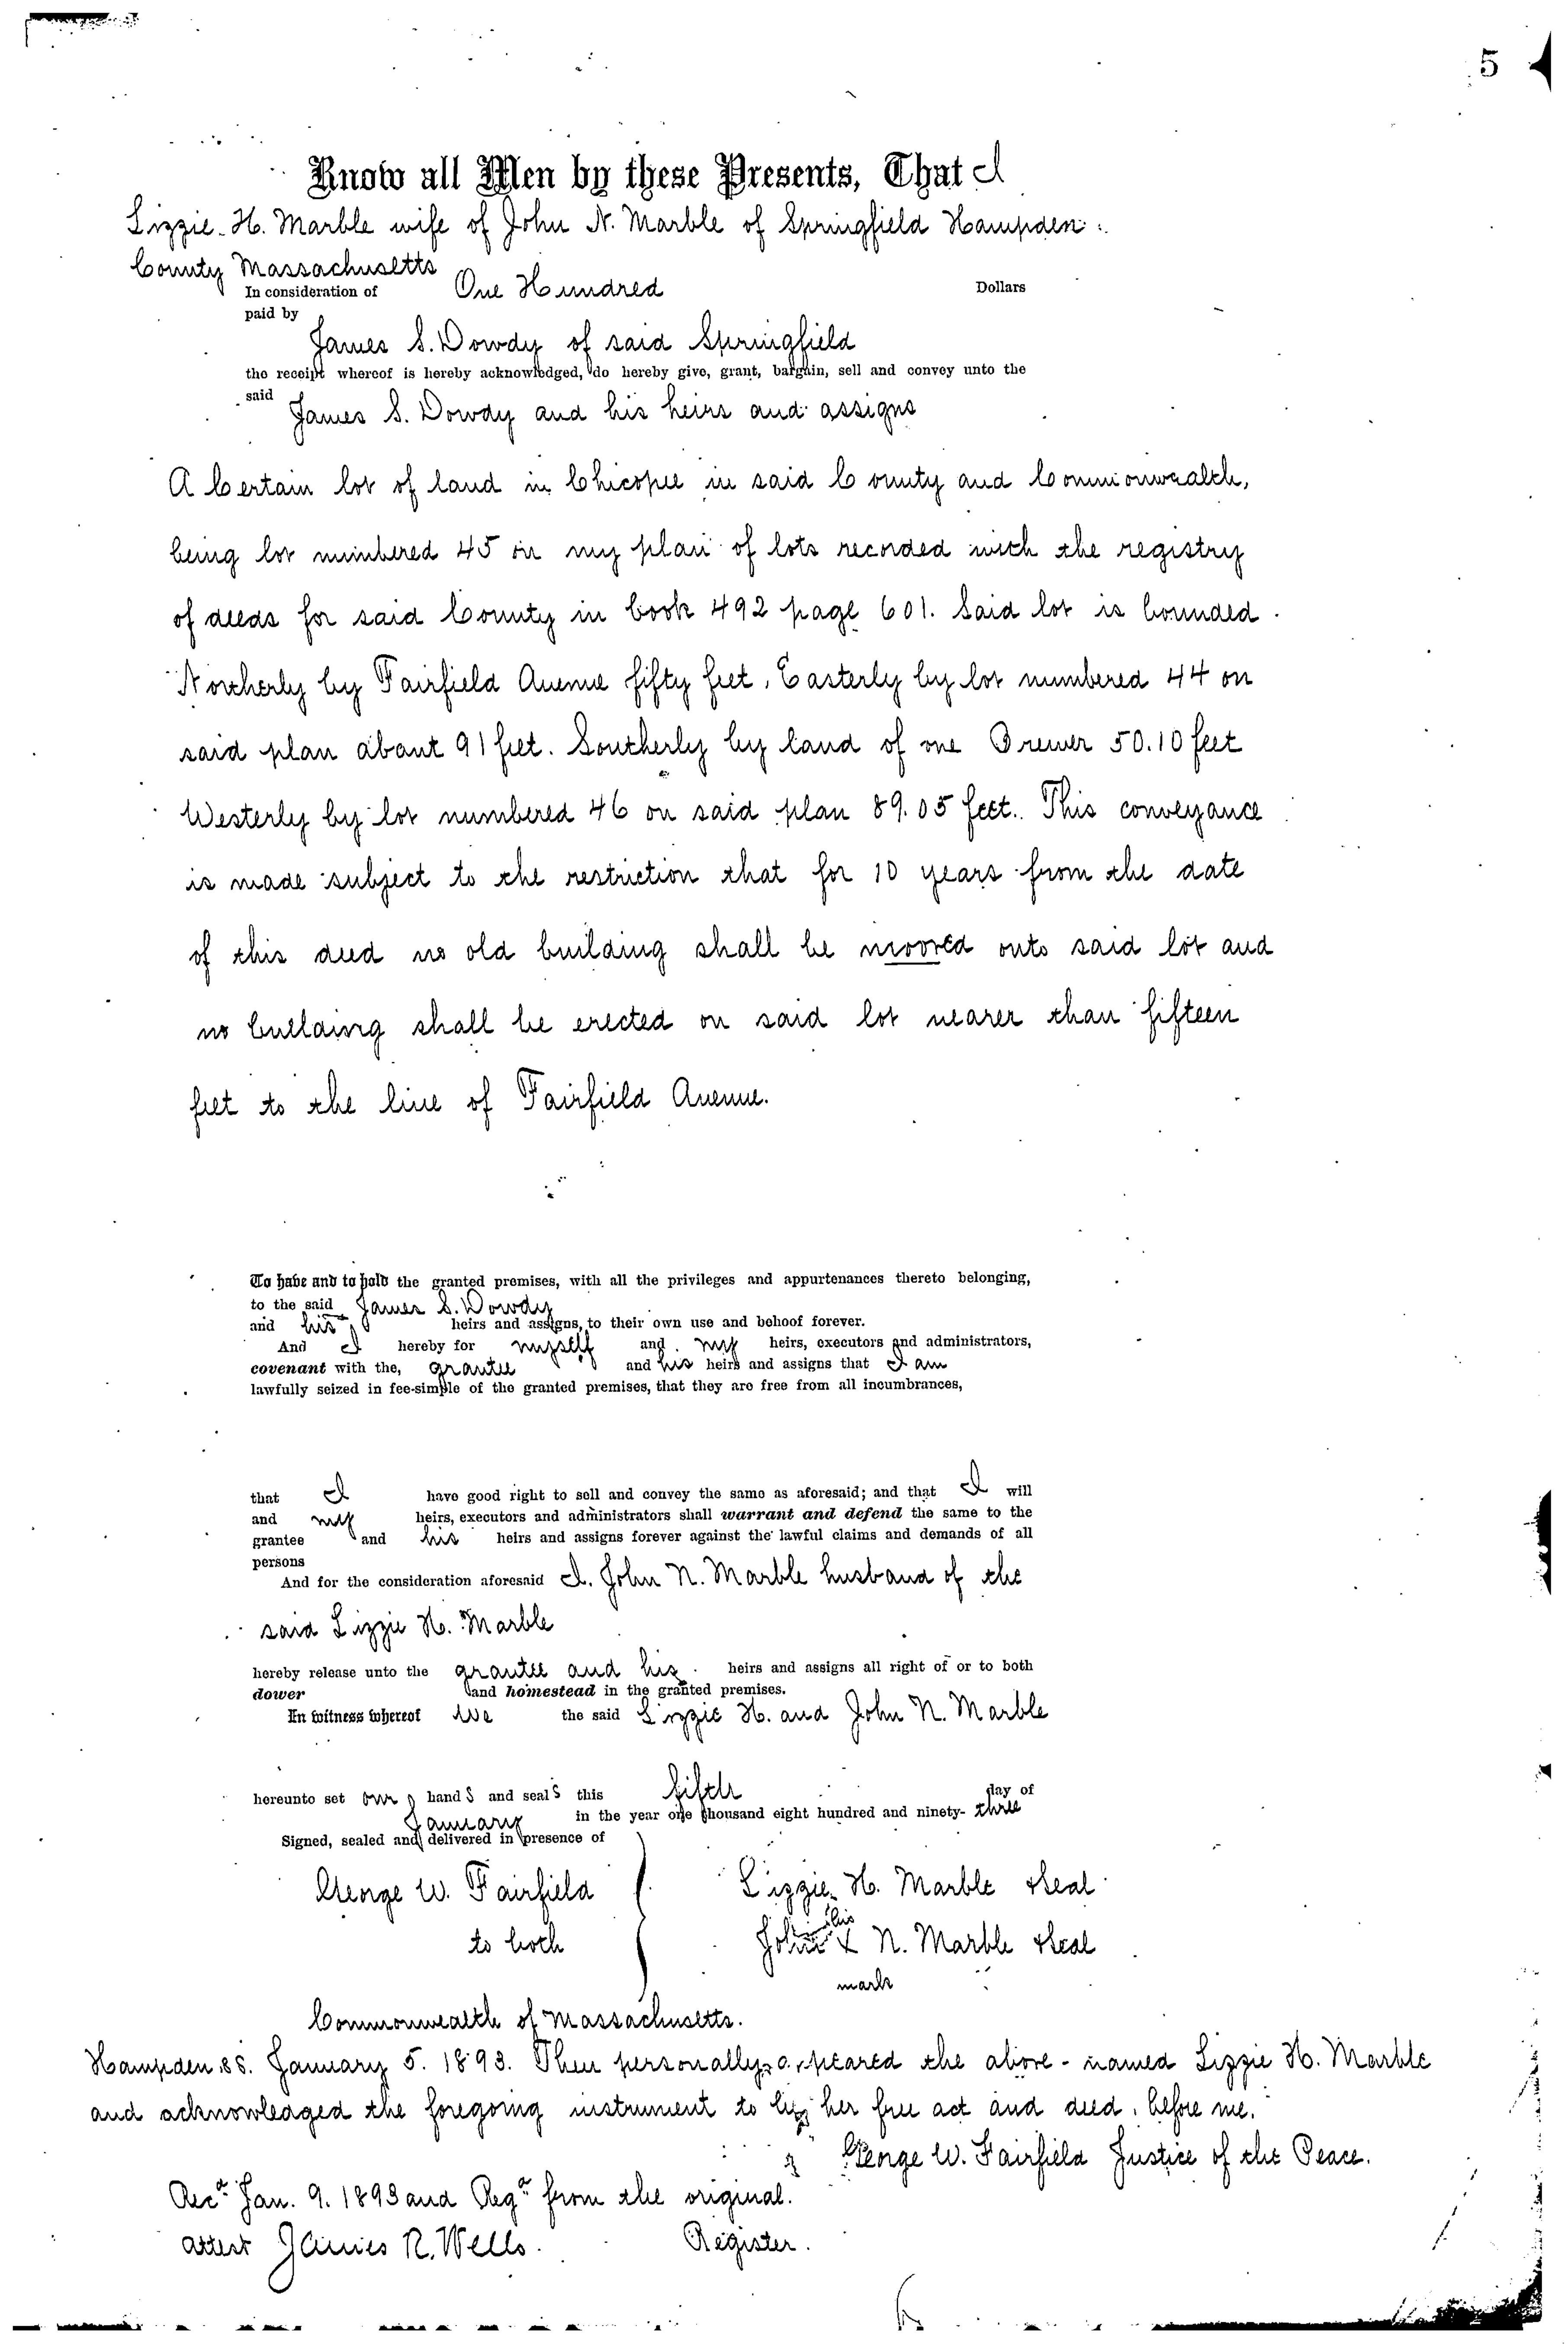 5
Know all Men by these Presents, That I
Lizzie H. Marble wife of John N. Marble of Springfield Hampden
County Massachusetts
In consideration of One Hundred Dollars
paid by
James S. Dowdy of said Springfield
the receipt whereof is hereby acknowledged, do hereby give, grant, bargain, sell and convey unto the
said James S. Dowdy and his heirs and assigns
A Certain lot of land in Chicopee in said County and Commonwealth,
being lot numbered 45 on my plan of lots recorded with the registry
of deeds for said County in book 492 page 601. Said lot is bounded
Northerly by Fairfield Avenue fifty feet, Easterly by lot numbered 44 on
said plan about 91 feet. Southerly by land of one Brewer 50.10 feet
Westerly by lot numbered 46 on said plan 89.05 feet. This conveyance
is made subject to the restriction that for 10 years from the date
of this deed no old building shall be moored onto said lot and
no building shall be erected on said lot nearer than fifteen
feet to the line of Fairfield Avenue.
To have and to hold the granted premises, with all the privileges and appurtenances thereto belonging,
to the said James S. Dowdy
and his heirs and assigns, to their own use and behoof forever.
And I hereby for myself and my heirs, executors and administrators,
covenant with the, grantee and his heirs and assigns that I am
lawfully seized in fee-simple of the granted premises, that they are free from all incumbrances,
that I have good right to sell and convey the same as aforesaid; and that I will
and my heirs, executors and administrators shall warrant and defend the same to the
grantee and his heirs and assigns forever against the lawful claims and demands of all
persons
And for the consideration aforesaid I, John N. Marble husband of the
said Lizzie H. Marble
hereby release unto the grantee and his heirs and assigns all right of or to both
dower and homestead in the granted premises.
In witness whereof we the said Lizzie H. and John N. Marble
hereunto set our hands and seals this fifth day of
January in the year one thousand eight hundred and ninety-three
Signed, sealed and delivered in presence of
George W. Fairfield Lizzie H. Marble Seal
his
to both John X N. Marble Seal
mark
Commonwealth of Massachusetts.
Hampden ss. January 5. 1893. Then personally appeared the above-named Lizzie H. Marble
and acknowledged the foregoing instrument to be her free act and deed, before me.
George W. Fairfield Justice of the Peace.
Recd Jan. 9. 1893 and Regd from the original.
Attest James R. Wells. Register.